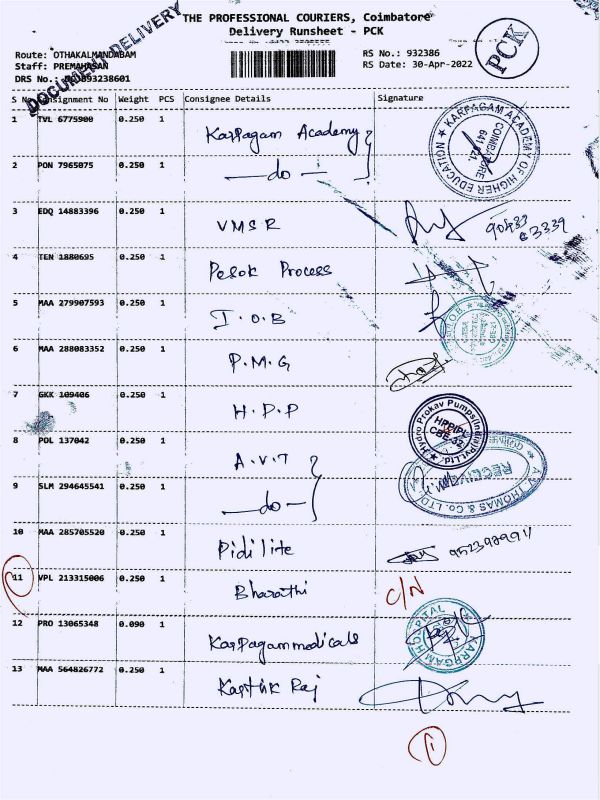 THE PROFESSIONAL COURIERS, Coimbatore
Delivery Runsheet - PCK
PCK
DOCUMENT DELIVERY
Route: OTHAKALMANDABAM
Staff: PREMAHASAN
RS No.: 932386
RS Date: 30-Apr-2022
S No Consignment No Weight PCS Consignee Details Signature
1 TVL 6775900 0.250 1 Karpagam Academy
KARPAGAM ACADEMY OF HIGHER EDUCATION COIMBATORE 641 021.
2 PON 7965075 0.250 1 —do—
3 EDQ 14883396 0.250 1 VMSR 90433 63339
4 TEN 1880695 0.250 1 Pesok Process
5 MAA 279907593 0.250 1 I.O.B
6 MAA 288083352 0.250 1 P.M.G
7 GKK 109406 0.250 1 H.P.P
Hydro Prokav Pumps(India)Pvt.Ltd. HPPIPL CBE-32
8 POL 137042 0.250 1 A.V.T
9 SLM 294645541 0.250 1 —do—
A.V. THOMAS & Co. LTD. RECEIVED
10 MAA 285705520 0.250 1 Pidilite
11 VPL 213315006 0.250 1 Bharathi C/N
12 PRO 13065348 0.090 1 Karpagam medicals
KARPAGAM HOSPITAL
13 MAA 564826772 0.250 1 Karthik Raj
1